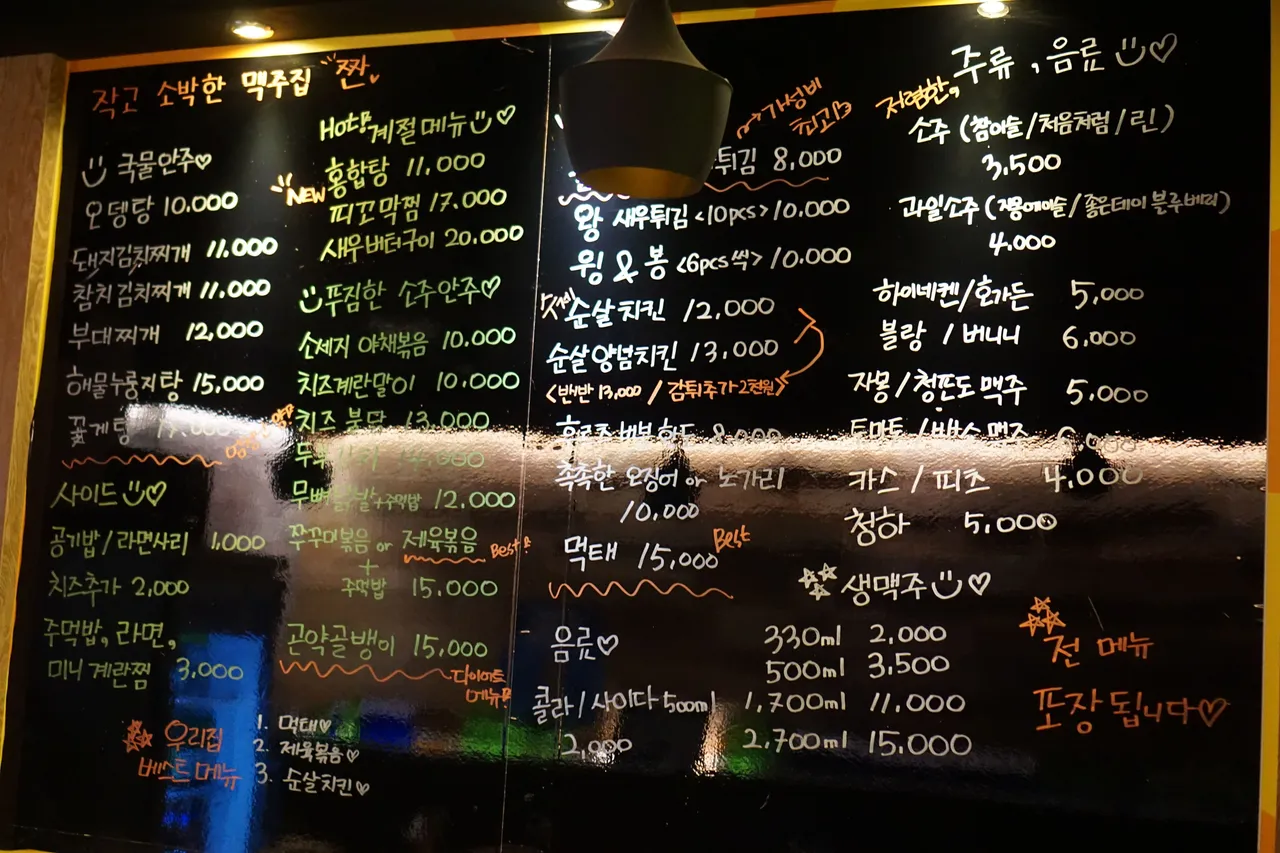 작고 소박한 맥주집 짠
국물안주♡
오뎅탕 10,000
돼지김치찌개 11,000
참치김치찌개 11,000
부대찌개 12,000
해물누룽지탕 15,000
꽃게탕
사이드♡
공기밥/라면사리 1,000
치즈추가 2,000
주먹밥, 라면,
미니계란찜 3,000
우리집
베스트메뉴
1. 먹태♡
2. 제육볶음♡
3. 순살치킨♡
Hot!! 계절메뉴♡
NEW 홍합탕 11,000
피꼬막찜 17,000
새우버터구이 20,000
푸짐한 소주안주♡
소세지 야채볶음 10,000
치즈계란말이 10,000
치즈 불닭 13,000
무뼈닭발+주먹밥 12,000
쭈꾸미볶음 or 제육볶음 Best!
+
주먹밥 15,000
곤약골뱅이 15,000
다이어트
메뉴!!
가성비
최고!!
튀김 8,000
왕 새우튀김 <10pcs> 10,000
윙 & 봉 <6pcs씩> 10,000
순살치킨 12,000
순살양념치킨 13,000
<반반 13,000 / 감튀추가 2천원>
8,000
촉촉한 오징어 or 노가리
10,000
먹태 15,000 Best
음료♡
콜라/사이다 500ml
2,000
저렴한, 주류, 음료♡
소주 (참이슬/처음처럼/린)
3,500
과일소주 (자몽에이슬/좋은데이 블루베리)
4,000
하이네켄/호가든 5,000
블랑 / 버니니 6,000
자몽/청포도맥주 5,000
토마토 / 맥주 6,000
카스 / 피츠 4,000
청하 5,000
생맥주♡
330ml 2,000
500ml 3,500
1,700ml 11,000
2,700ml 15,000
전 메뉴
포장됩니다♡